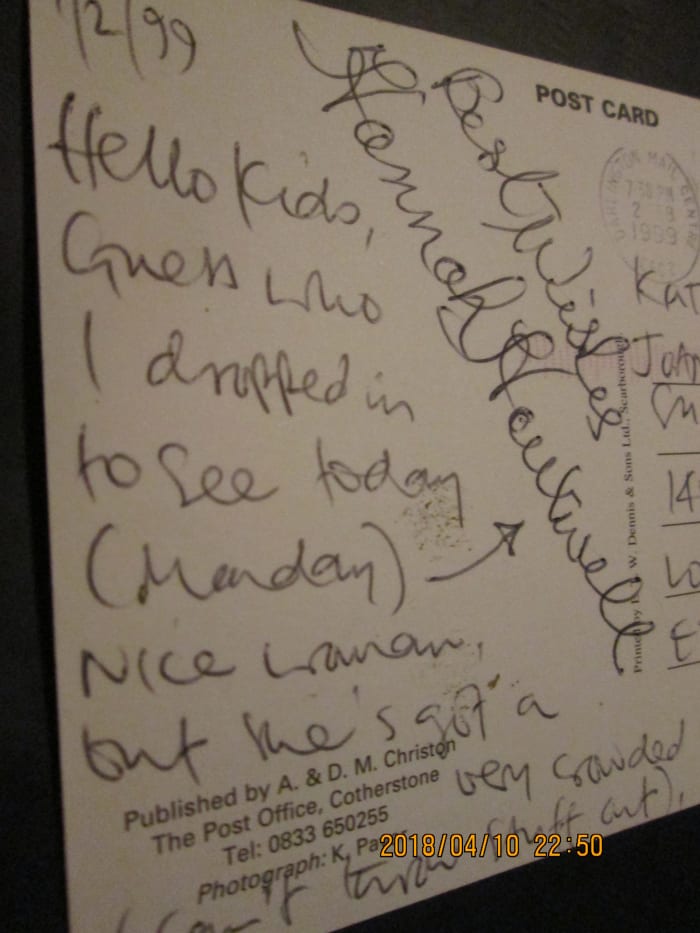 1/2/99
Hello Kids,
Guess who
I dropped in
to see today
(Monday)
Nice woman,
but she's got a
very crowded
(can't throw stuff out),
Best Wishes
Hannah Hauxwell
POST CARD
7-30 PM
1999
Published by A. & D. M. Christon
The Post Office, Cotherstone
Tel: 0833 650255
Photograph: K.
W. Dennis & Sons Ltd., Scarborough
2018/04/10 22:50